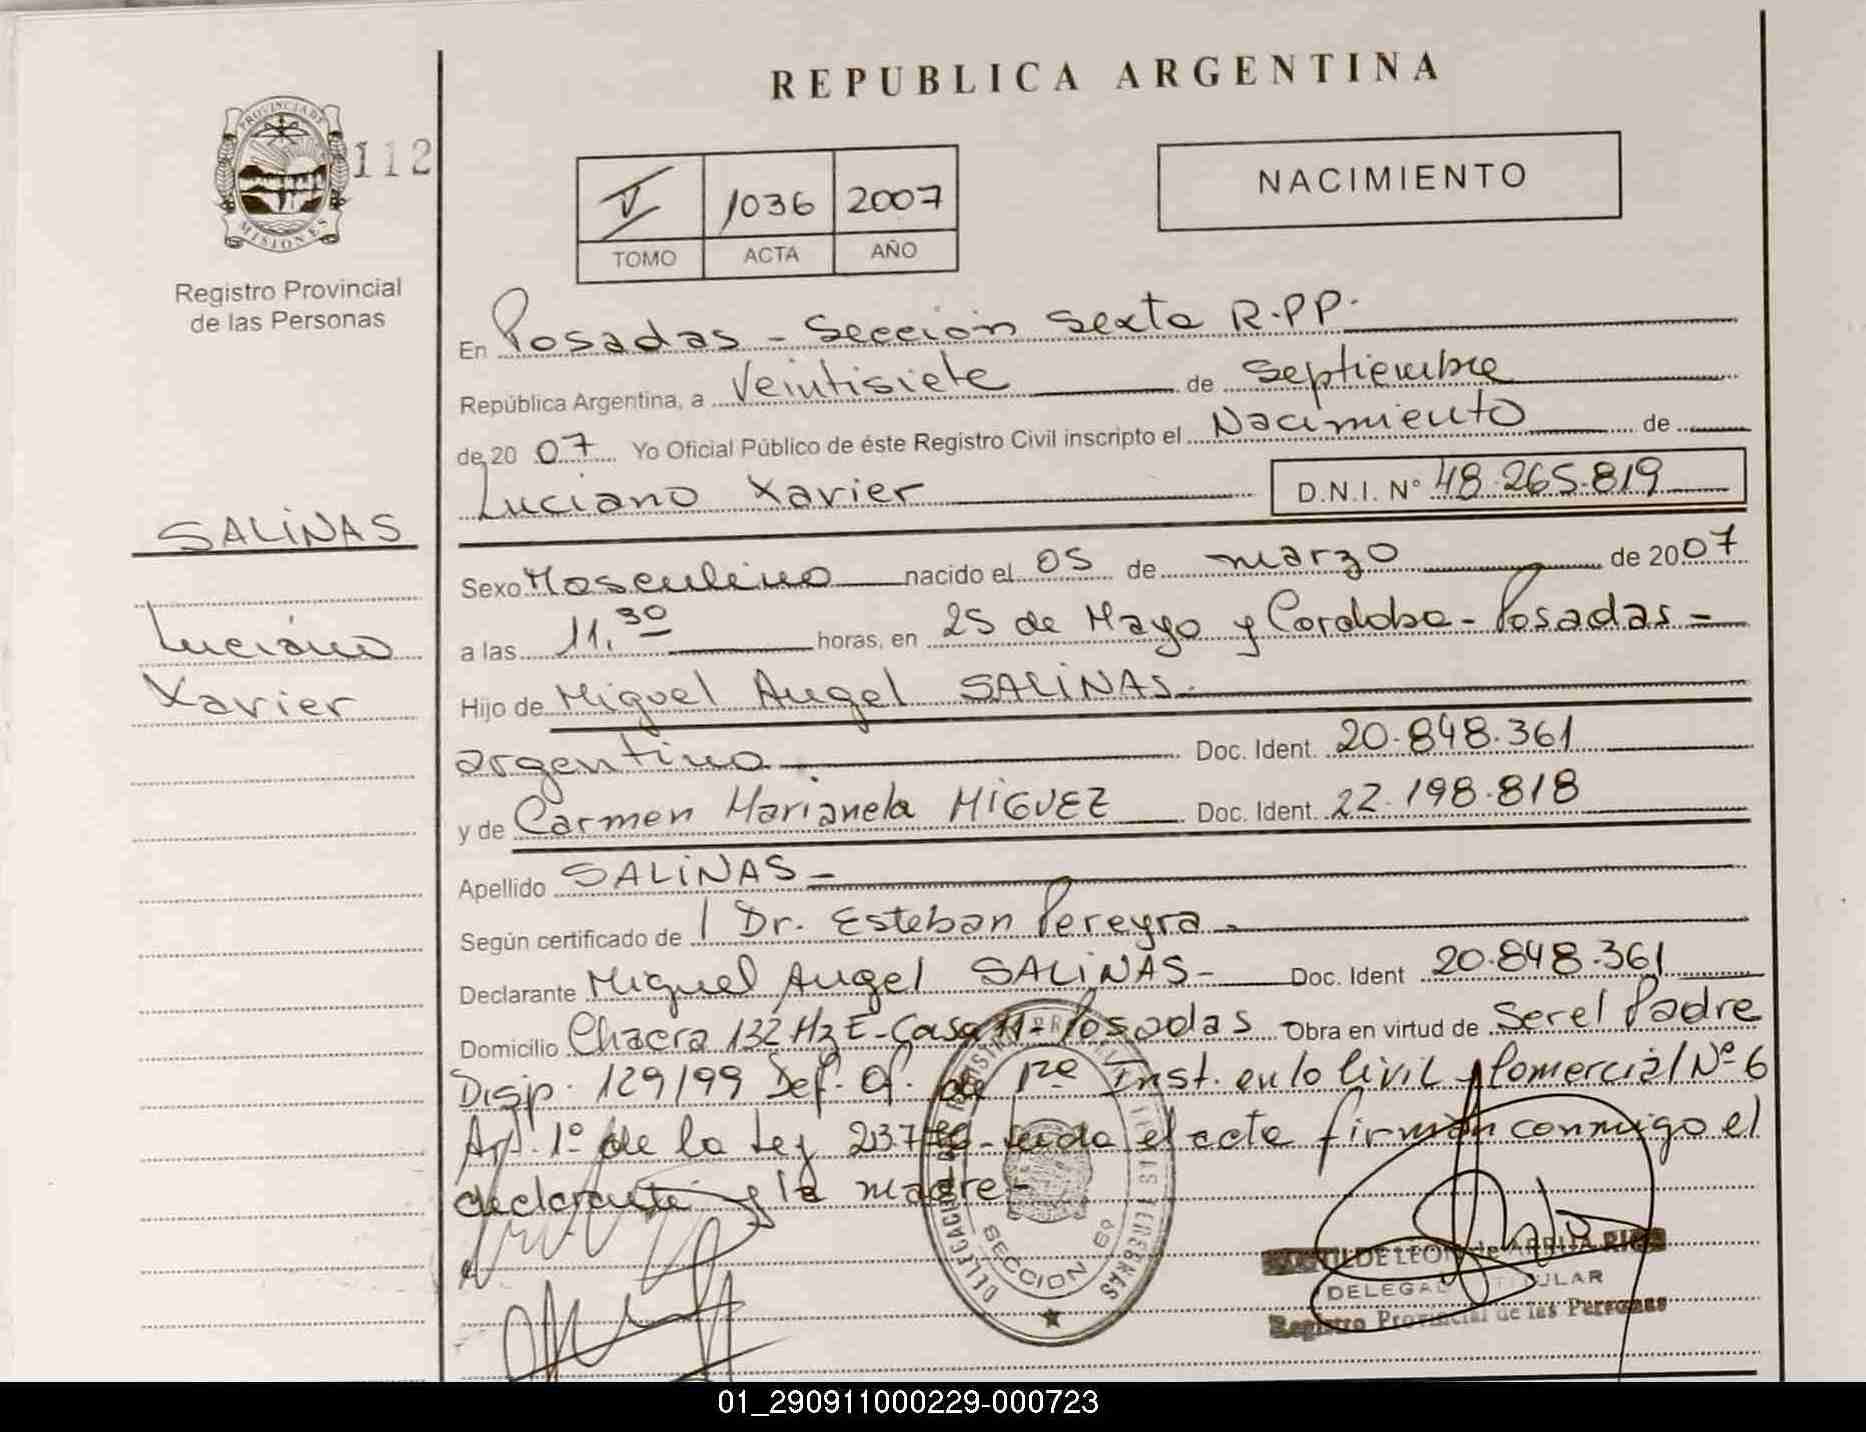 REPUBLICA ARGENTINA
PROVINCIA DE MISIONES
112
Registro Provincial
de las Personas
V 1036 2007
TOMO ACTA AÑO
NACIMIENTO
En Posadas - Sección Sexta R.P.P.
República Argentina, a Veintisiete de Septiembre
de 2007 Yo Oficial Público de éste Registro Civil inscripto el Nacimiento de
Luciano Xavier D.N.I. N° 48.265.819
SALINAS
Luciano
Xavier
Sexo Masculino nacido el 05 de marzo de 2007
a las 11.30 horas, en 25 de Mayo y Cordoba - Posadas -
Hijo de Miguel Angel SALINAS -
argentino Doc. Ident. 20.848.361
y de Carmen Marianela MIGUEZ Doc. Ident. 22.198.818
Apellido SALINAS -
Según certificado de Dr. Esteban Pereyra -
Declarante Miguel Angel SALINAS - Doc. Ident 20.848.361
Domicilio Chacra 132 Mz E - Casa 11 - Posadas Obra en virtud de Ser el Padre
Disp. 129/99 Def. Of. de 1ra Inst. en lo Civil y Comercial N° 6
Art. 1° de la Ley Leida el acta firman conmigo el
declarante y la madre -
SECCION 6°
DELEGADA TITULAR
Registro Provincial de las Personas
01_290911000229-000723